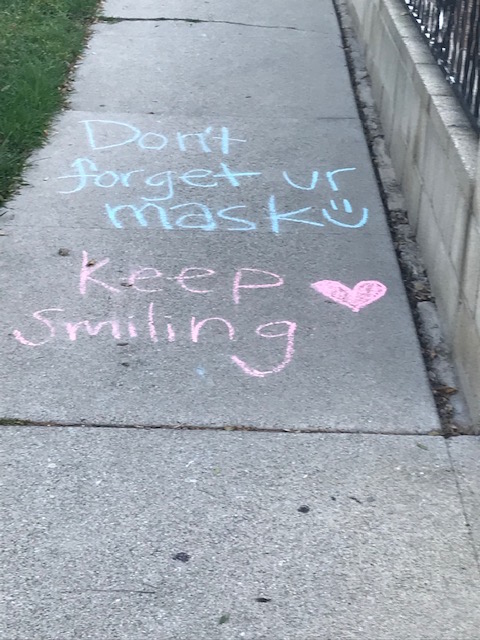 Don't
forget ur
mask
Keep
Smiling